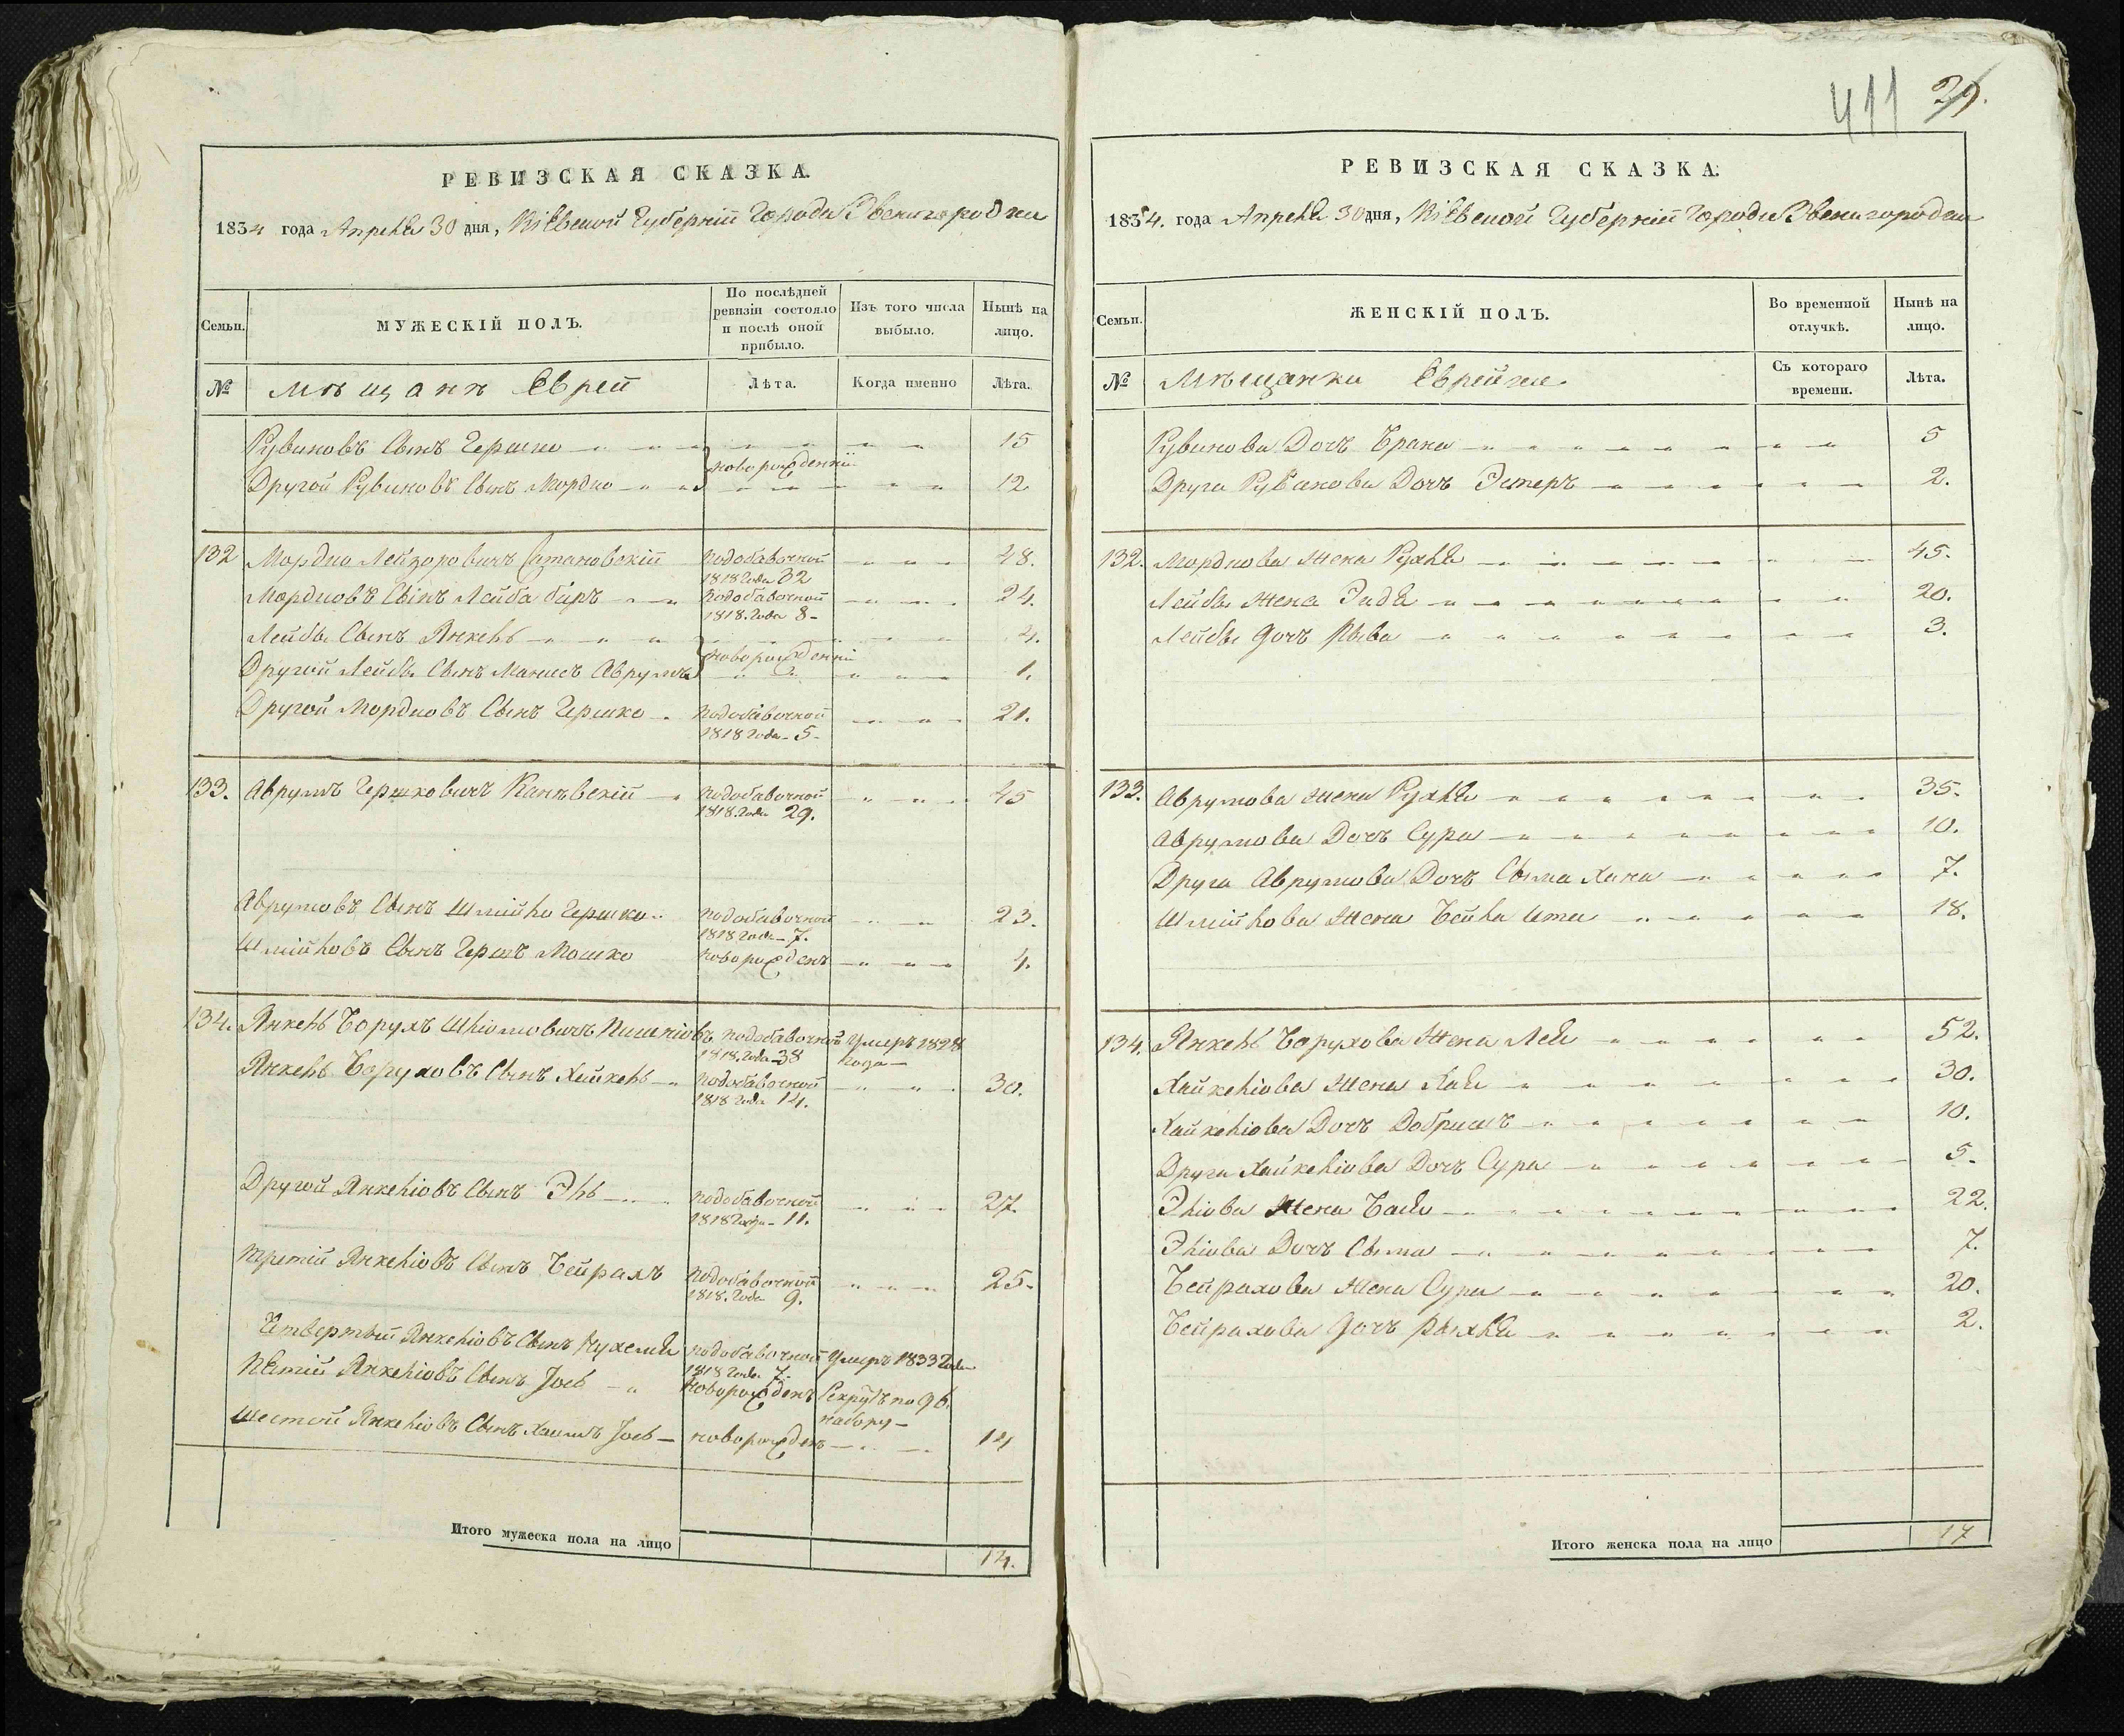 РЕВИЗСКАЯ СКАЗКА.
1834 года Апреля 30 дня, Кіевской Губерніи Города Звенигородки
Семьи.
МУЖЕСКІЙ ПОЛЪ.
По послѣдней ревизіи состояло и послѣ оной прибыло.
Изъ того числа выбыло.
Нынѣ на лицо.
№ мѣщанѣ Еврей
Лѣта. Когда именно Лѣта.
Рувиновъ Сынъ Гершко 15
новорожденніи
Другой Рувиновъ Сынъ Мордко 12
132 Мордко Лейзоровичъ Сатановскій подобавочной 1818 года 32 48.
Мордковъ Сынъ Лейба бѣръ подобавочной 1818. года 8 24.
Лейбы Сынъ Янкель 4.
новорожденніи
Другой Лейбы Сынъ Манисъ Аврумъ 1.
Другой Мордковъ Сынъ Гершко подобавочной 1818 года 5 21.
133. Аврумъ Гершковичъ Каневскій подобавочной 1818. года 29. 45
Аврумовъ Сынъ Шмійло Гершко подобавочной 1818 года 7. 23.
Шмійловъ Сынъ Гершъ Мошко новорожденъ 4.
134. Янкель Борухъ Шліомовичъ подобавочной 1818. года 38 Умеръ 1828 года
Янкель Боруховъ Сынъ Хайкель подобавочной 1818 года 14. 30.
Другой Янкеліовъ Сынъ Эль подобавочной 1818 года 11. 27.
Третій Янкеліовъ Сынъ Бейрахъ подобавочной 1818. года 9. 25.
Четвертый Янкеліовъ Сынъ Нухемъ подобавочной 1818 года 7. Умеръ 1833 года
Пятій Янкеліовъ Сынъ Іось новорожденъ Рекрутъ по 96. набору
Шестой Янкеліовъ Сынъ Хаимъ Іось новорожденъ 14
Итого мужеска пола на лицо 14.
411 39.
РЕВИЗСКАЯ СКАЗКА.
1834. года Апреля 30 дня, Кіевской Губерніи Города Звенигородки
Семьи.
ЖЕНСКІЙ ПОЛЪ.
Во временной отлучкѣ.
Нынѣ на лицо.
№ Мѣщанки Еврейки
Съ котораго времени. Лѣта.
Рувинова Дочъ Брана 5
Друга Рувинова Дочъ Эстеръ 2.
132. Мордкова Жена Рухля 45.
Лейбы Жена Эидя 20.
Лейбы Дочъ Рыва 3.
133. Аврумова жена Рухля 35.
Аврумова Дочъ Сура 10.
Друга Аврумова Дочъ Сыма Хана 7.
Шмійлова Жена Бейла Ита 18.
134. Янкель Борухова Жена Лея 52.
Хайкеліова Жена Хая 30.
Хайкеліова Дочъ Добришъ 10.
Друга Хайкеліова Дочъ Сура 5.
Эліова Жена Бася 22.
Эліова Дочъ Сыма 7.
Бейрахова Жена Сура 20.
Бейрахова Дочъ Рыхля 2.
Итого женска пола на лицо 17